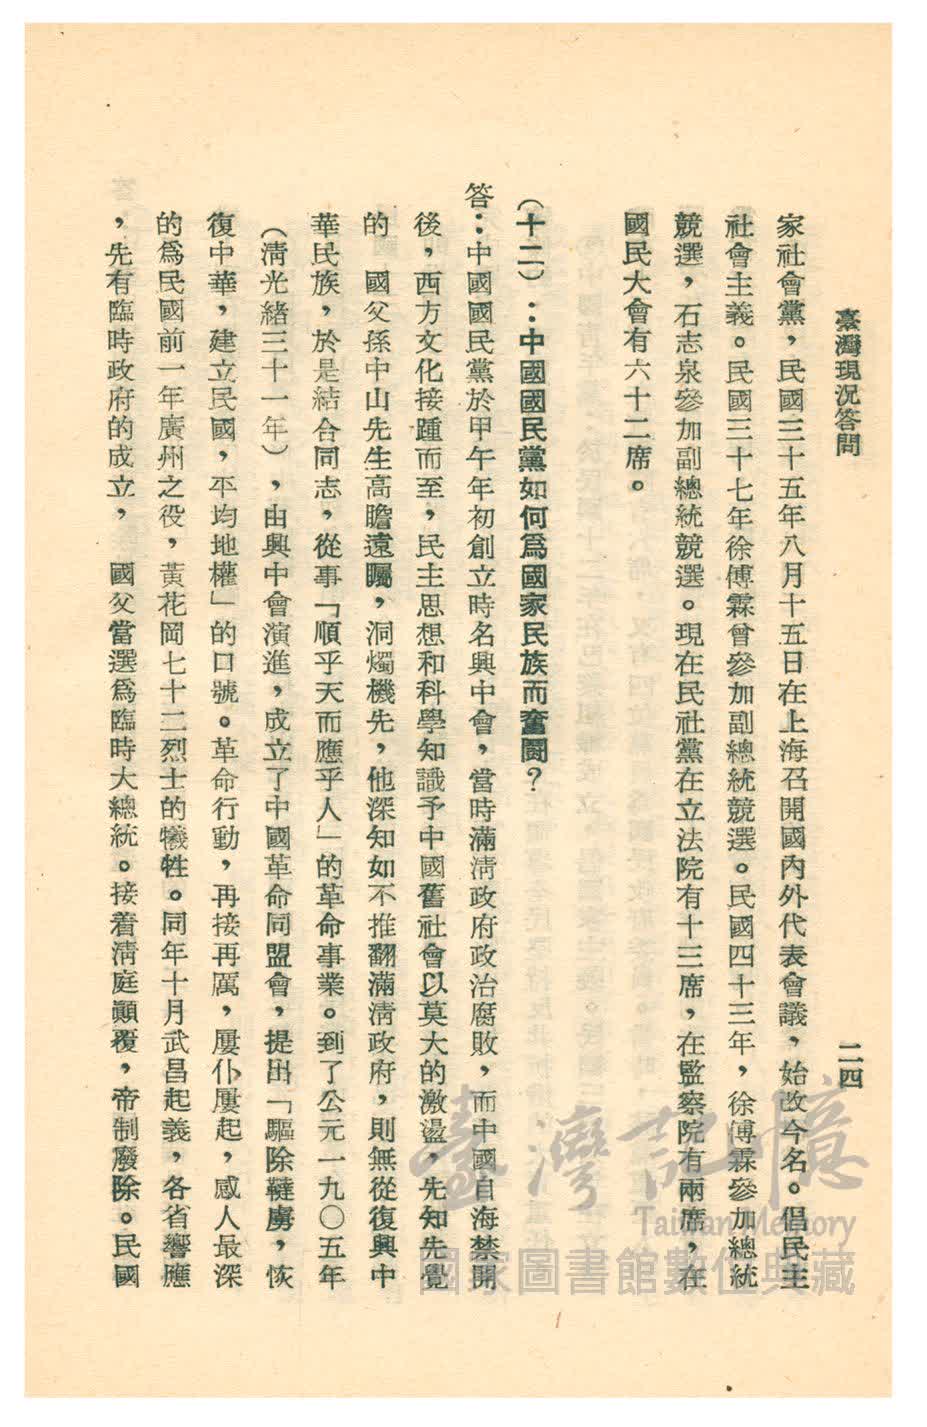 臺灣現況答問
二四
家社會黨，民國三十五年八月十五日在上海召開國內外代表會議，始改今名。倡民主
社會主義。民國三十七年徐傅霖曾參加副總統競選。民國四十三年，徐傅霖參加總統
競選，石志泉參加副總統競選。現在民社黨在立法院有十三席，在監察院有兩席，在
國民大會有六十二席。
（十二）：中國國民黨如何爲國家民族而奮鬪？
答：中國國民黨於甲午年初創立時名興中會，當時滿淸政府政治腐敗，而中國自海禁開
後，西方文化接踵而至，民主思想和科學知識予中國舊社會以莫大的激盪，先知先覺
的　國父孫中山先生高瞻遠矚，洞燭機先，他深知如不推翻滿淸政府，則無從復興中
華民族，於是結合同志，從事「順乎天而應乎人」的革命事業。到了公元一九〇五年
（淸光緒三十一年），由興中會演進，成立了中國革命同盟會，提出「驅除韃虜，恢
復中華，建立民國，平均地權」的口號。革命行動，再接再厲，屢仆屢起，感人最深
的爲民國前一年廣州之役，黃花岡七十二烈士的犧牲。同年十月武昌起義，各省響應
，先有臨時政府的成立，　國父當選爲臨時大總統。接着淸庭顚覆，帝制廢除。民國
臺灣記憶
Taiwan Memory
國家圖書館數位典藏